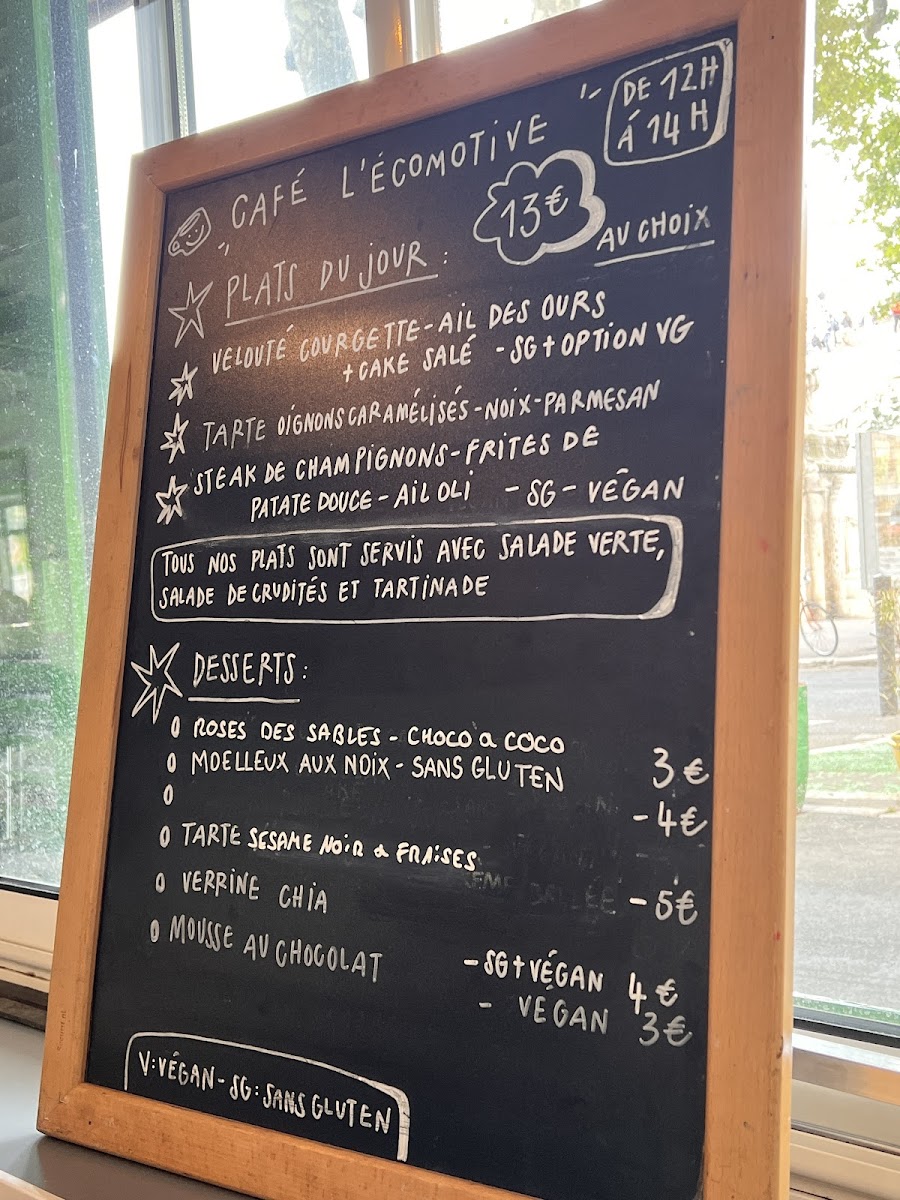 CAFÉ L'ÉCOMOTIVE
DE 12H
Á 14H
13€
AU CHOIX
PLATS DU JOUR :
VELOUTÉ COURGETTE-AIL DES OURS
+ CAKE SALÉ - SG + OPTION VG
TARTE OIGNONS CARAMÉLISÉS-NOIX-PARMESAN
STEAK DE CHAMPIGNONS-FRITES DE
PATATE DOUCE - AILOLI - SG - VÉGAN
TOUS NOS PLATS SONT SERVIS AVEC SALADE VERTE,
SALADE DE CRUDITÉS ET TARTINADE
DESSERTS :
ROSES DES SABLES - CHOCO & COCO
MOELLEUX AUX NOIX - SANS GLUTEN 3€
- 4€
TARTE SÉSAME NOIR & FRAISES
- 5€
VERRINE CHIA
MOUSSE AU CHOCOLAT
- SG + VÉGAN 4€
- VÉGAN 3€
V: VÉGAN - SG: SANS GLUTEN